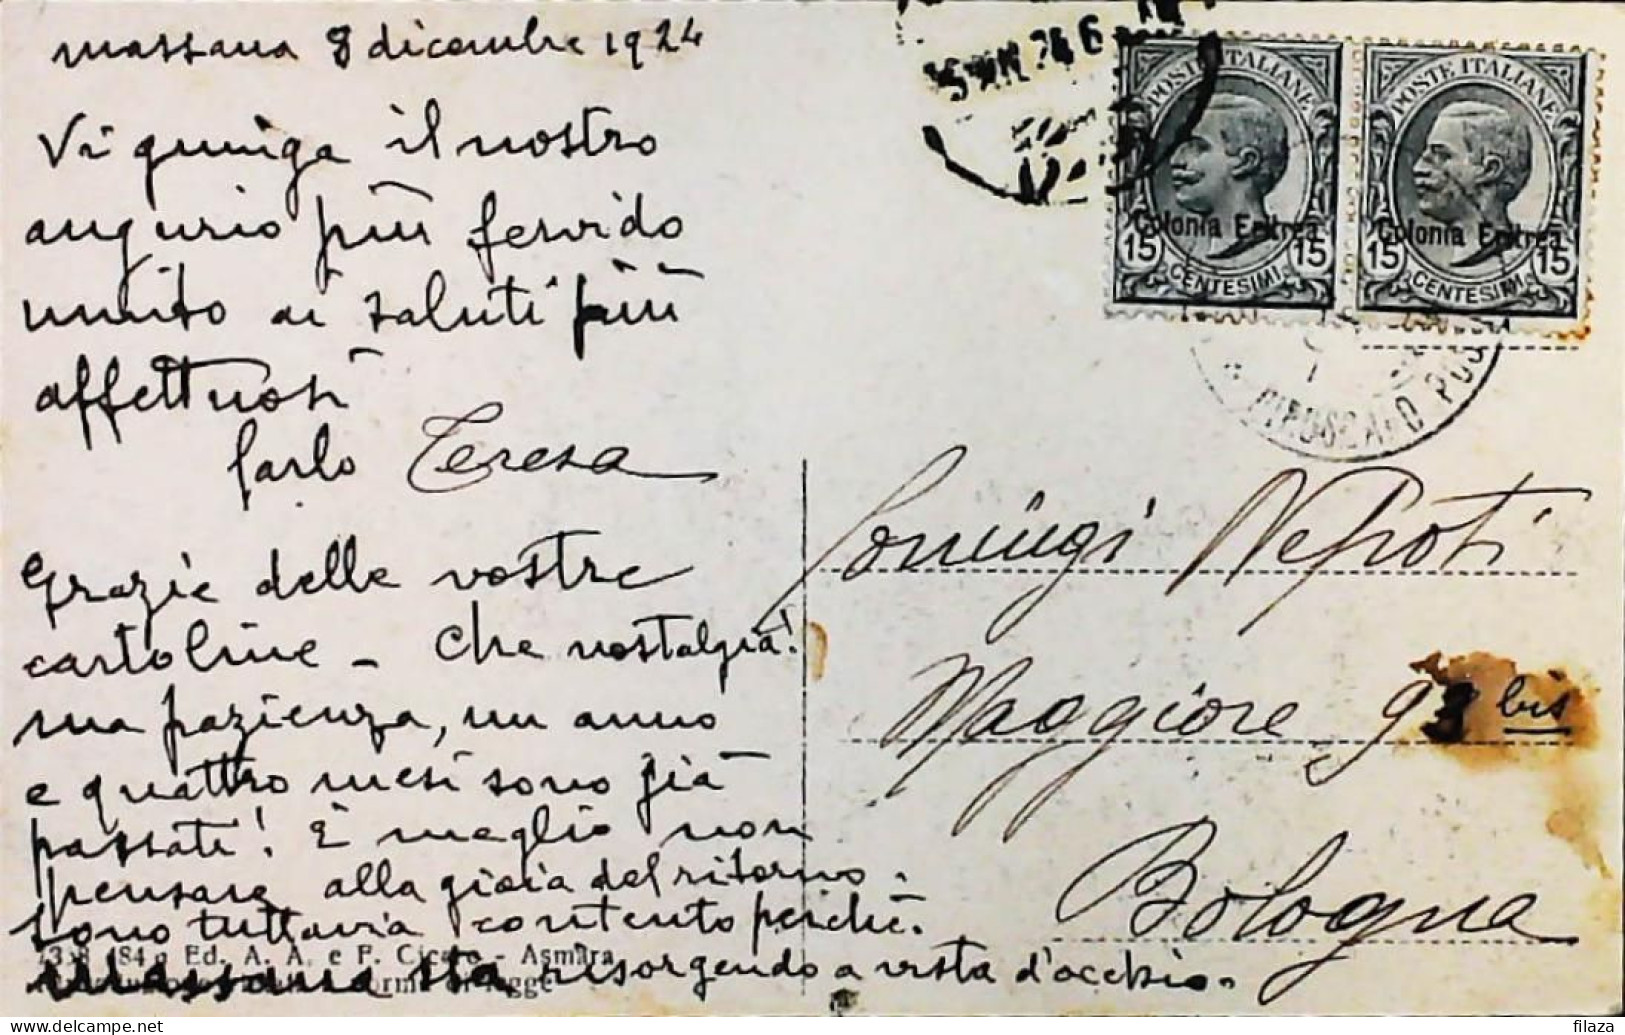 Massaua 8 dicembre 1924
Vi giunga il nostro
augurio più fervido
unito ai saluti più
affettuosi
Carlo Teresa
Grazie delle vostre
cartoline - Che nostalgia!
ma pazienza, un anno
e quattro mesi sono già
passati! È meglio non
pensare alla gioia del ritorno.
Sono tuttavia contento perché
Massaua sta risorgendo a vista d'occhio.
Ed. A. A. e F. Cicero - Asmara
a norma di legge
POSTE ITALIANE
Colonia Eritrea
15 15
CENTESIMI
POSTE ITALIANE
Colonia Eritrea
15 15
CENTESIMI
PIROSCAFO POS
Coniugi Nepoti
Maggiore 93 bis
Bologna
delcampe.net
filaza